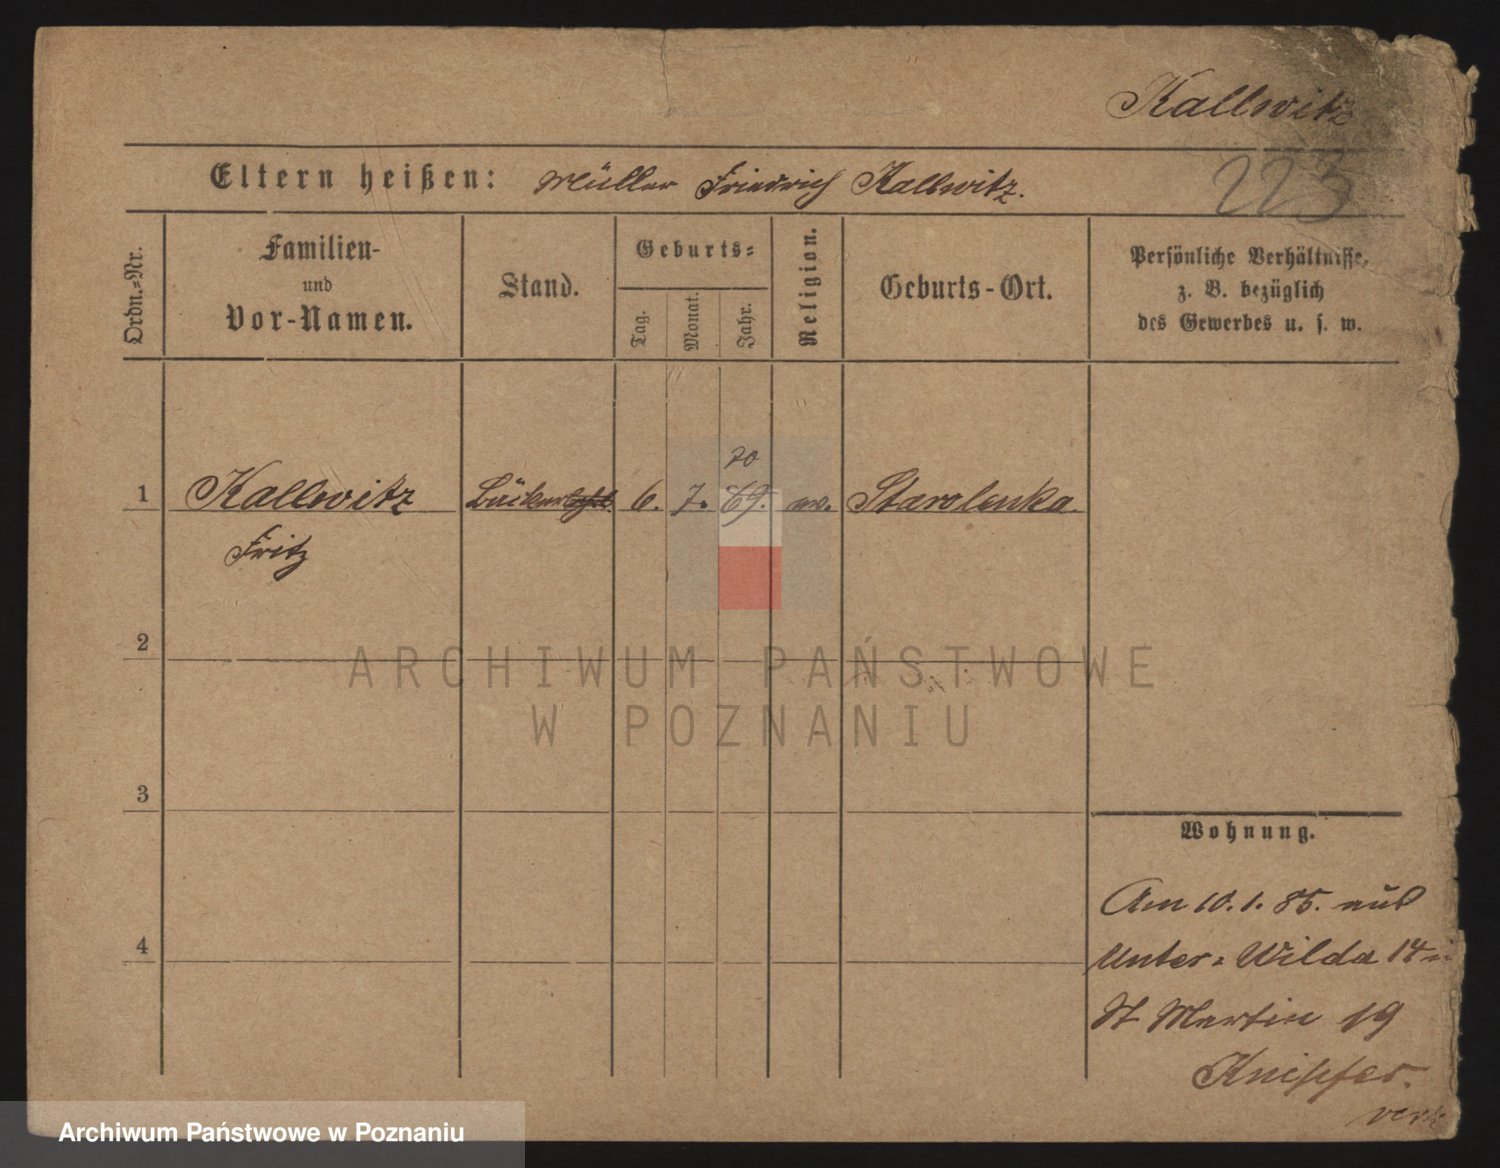 Kallwitz
223
Eltern heißen: Müller Friedrich Kallwitz.
Ordn.-Nr.
Familien-
und
Vor-Namen.
Stand.
Geburts-
Tag.
Monat.
Jahr.
Religion.
Geburts-Ort.
Persönliche Verhältnisse,
z. B. bezüglich
des Gewerbes u. s. w.
70
1 Kallwitz Bäckerlehrl. 6. 7. 69. ev. Starolenka
Fritz
2
3
4
Wohnung.
Am 10.1.85. aus
Unter-Wilda 14 in
St Martin 19
Knipfer.
ARCHIWUM PAŃSTWOWE
W POZNANIU
Archiwum Państwowe w Poznaniu